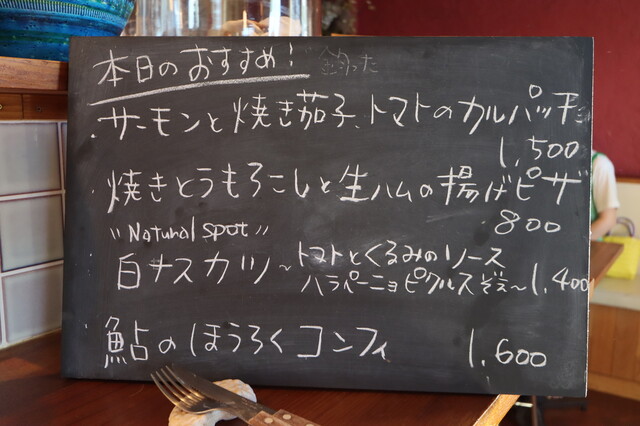 本日のおすすめ！ 釣った
・サーモンと焼き茄子、トマトのカルパッチョ
1,500
・焼きとうもろこしと生ハムの揚げピザ
800
"Natural spot"
白ナスカツ〜トマトとくるみのソース
ハラペーニョピクルスぞえ〜1,400
・鮎のほうろくコンフィ 1,600